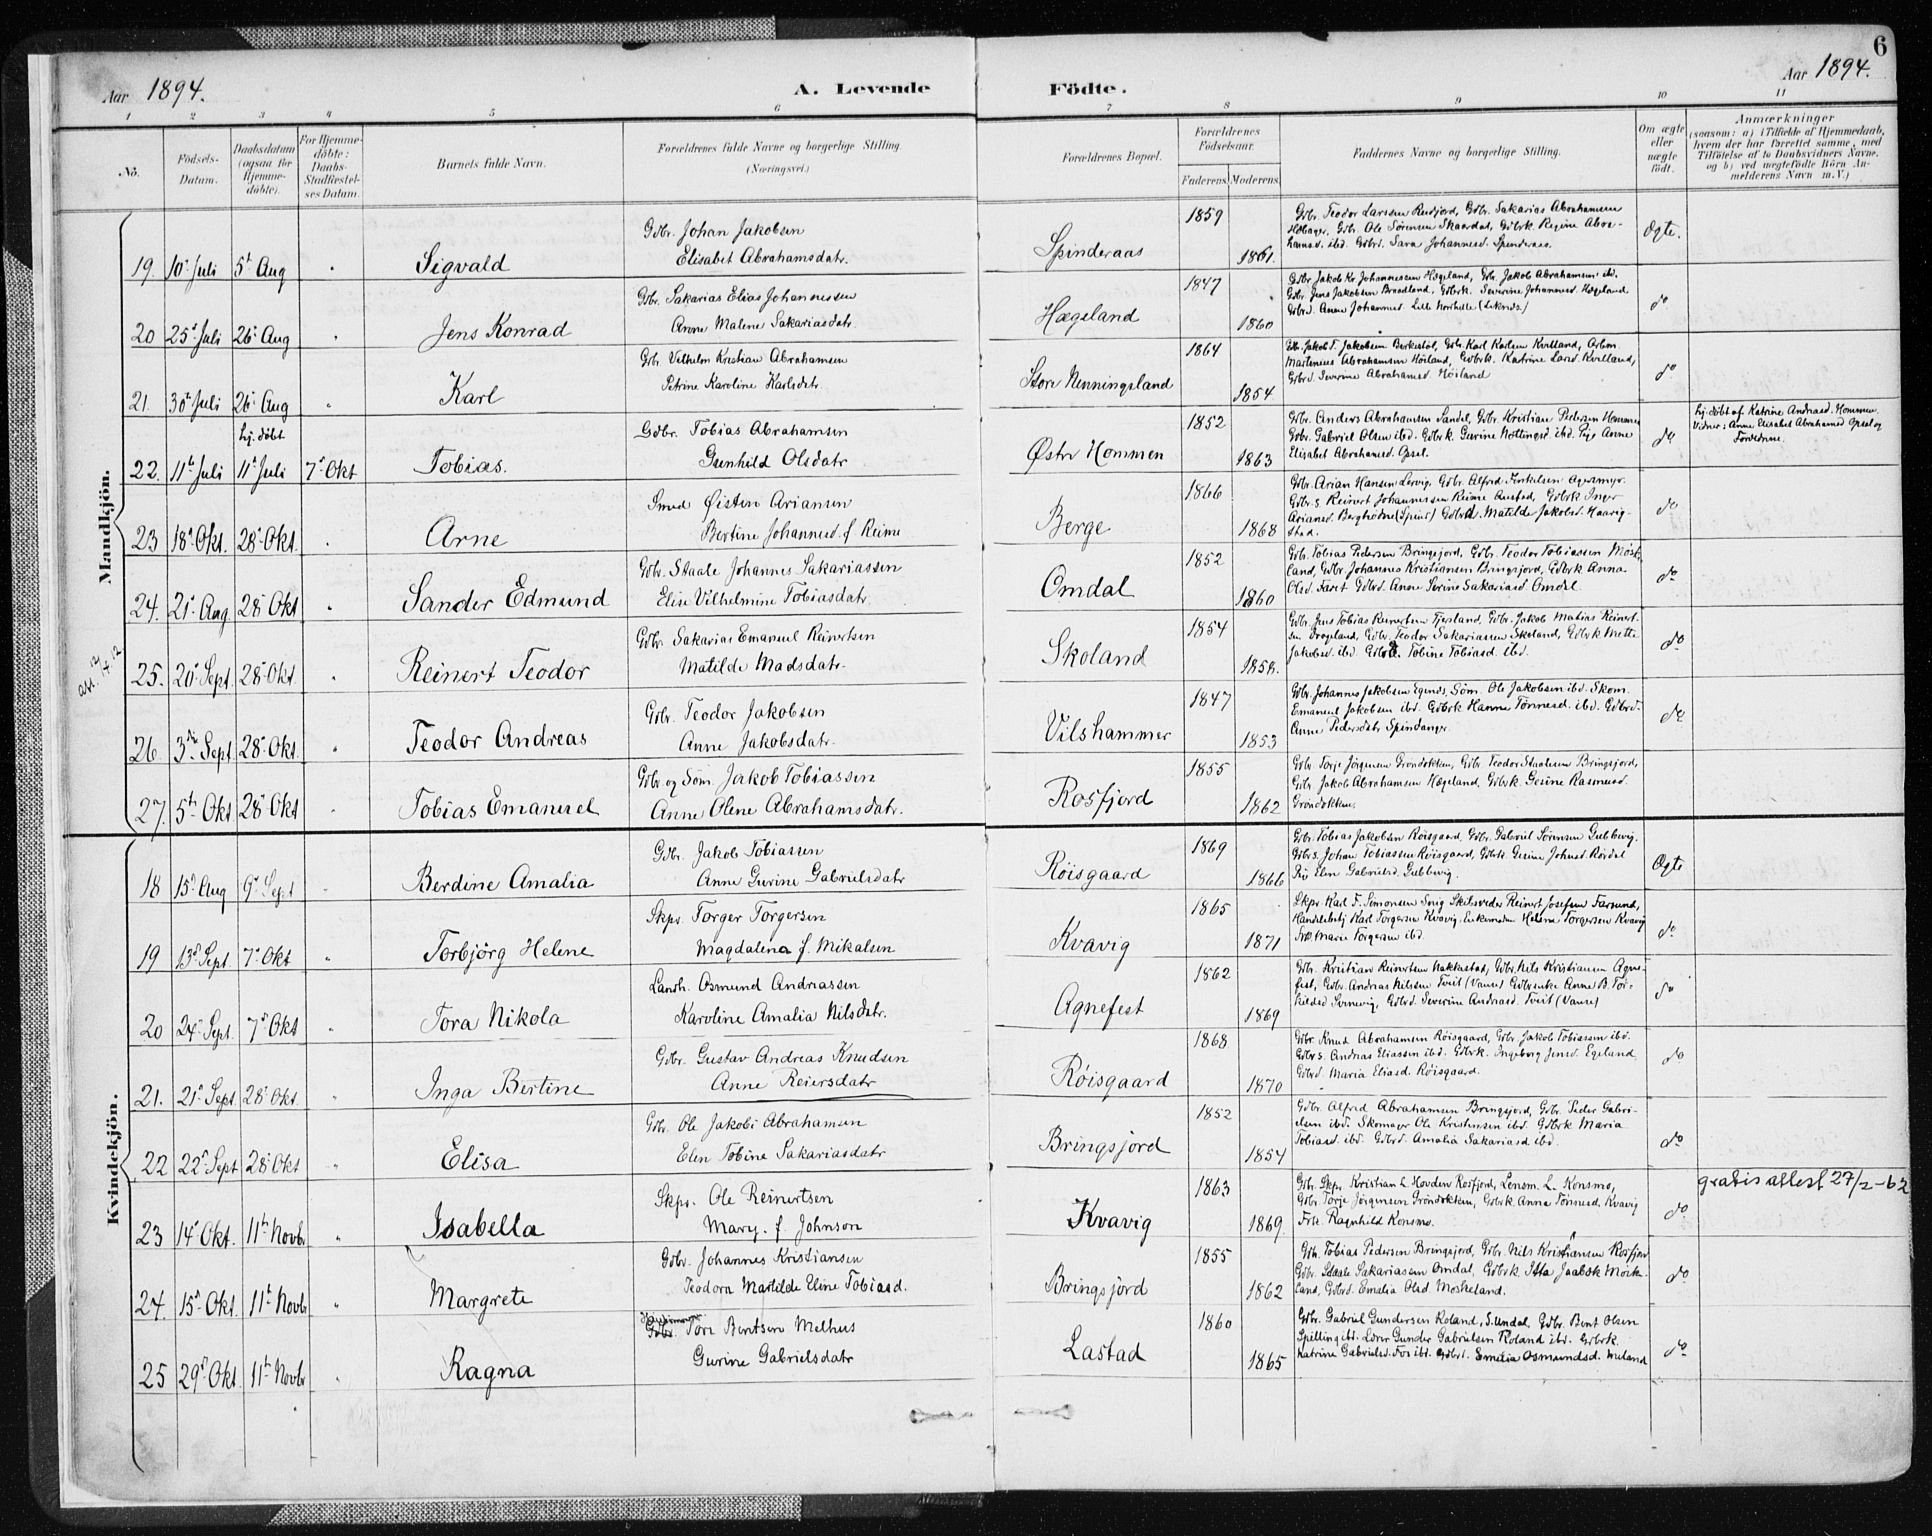 6
Aar 1894.
A. Levende
Födte.
Aar 1894.
1 2 3 4 5 6 7 8 9 10 11
No.
Födsels-
Datum.
Daabsdatum
(ogsaa for
Hjemme-
döbte).
For Hjemme-
döbte:
Daabs-
Stadfæstel-
ses Datum.
Barnets fulde Navn.
Forældrenes fulde Navne og borgerlige Stilling.
(Næringsvei.)
Forældrenes Bopæl.
Forældrenes
Födselsaar.
Faderens. Moderens.
Faddernes Navne og borgerlige Stilling.
Om ægte
eller
uægte
födt.
Anmærkninger
(saasom: a) i Tilfælde af Hjemmedaab,
hvem der har forrettet samme, med
Tilföielse af to Daabsvidners Navne,
og b) ved uægtefödte Börn An-
melderens Navn m. V.)
Mandkjön.
19. 10. Juli 5t Aug Sigvald
Gdbr. Johan Jakobsen
Elisabet Abrahamsdatr.
Spinderaas 1859 1861.
Gdbr. Teodor Larssen Reidjord, Gdbr. Sakarias Abrahamsen
Gdbr. Ole Sørensen Skaardal, Gdbrk. Regine Abra-
hamsd. ibd. Gdbrd. Sara Johannesd. Spinderaas.
Ægte.
20 25. Juli 26. Aug Jens Konrad
Gdbr. Sakarias Elias Johannessen
Anne Malene Sakariasdatr.
Hægeland 1847 1860
Gdbr Jakob Kr. Johannessen Hægeland, Gdbr. Jakob Abrahamsen ibd.
Gdbr. Jens Jakobsen Braadland, Gdbrk. Severine Johannesd. Hægeland
Gdbrd. Anne Johannesd Lille
do
21. 30. Juli 26. Aug Karl
Gdbr. Vilhelm Kristian Abrahamsen
Petrine Karoline Karlsdatr.
Store Nenningsland 1864 1854
Jakob T. Jakobsen Birkestøl, Gdb. Karl Karlsen Kvilland, Arbm.
Martenius Abrahamsen Höiland, Gdbrk. Katrine Larsd. Kvilland,
Gdbrd. Severine Abrahamsd. Höiland
do
22. 11t Juli hj. döbt 11t Juli 7. Okt Tobias.
Gdbr. Tobias Abrahamsen
Gunhild Olsdatr
Østre Hommen 1852 1863
Gdbr. Anders Abrahamsen Sandel, Gdbr. Kristian Pedersen Hommen
Gdbr. Gabriel Olsen ibd. Gdbrk. Gurine Nottingsd. ibd. Pige Anne
Elisabet Abrahamsd. Opsel.
do
hj. döbt af Katrine Andreasd. Hommen.
Vidner: Anne Elisabet Abrahamsd Opsel og
Forældrene.
23 18. Okt. 28. Okt. Arne
Smed Øisten Ariansen
Bertine Johannesd. f. Reime
Berge 1866 1868
Gdbr. Arian Hansen Lervig, Gdbr. Alfred Terkelsen Agersmyr.
Gdbr.s. Reinert Johannessen Reime Austad, Gdbrk Inger
Ariansd. Gdbrd. Matilde Jakobsd. Haarig-
stad.
do
24. 21. Aug. 28. Okt Sander Edmund
Gdbr. Staale Johannes Sakariassen
Elise Vilhelmine Tobiasdatr.
Omdal 1852 1860
Gdb. Tobias Pedersen Bringsjord, Gdbr. Teodor Tobiassen Mösk-
land, Gdbr. Johannes Kristiansen Bringsjord, Gdbrk Anna
Olsd. Faret Gdbrd. Anne Serine Sakariasd Omdal
do
att. 12/12.
25. 20. Sept. 28. Okt. Reinert Teodor
Gdbr. Sakarias Emanuel Reinertsen
Matilde Madsdatr.
Skoland 1854 1858.
Gdbr. Jens Tobias Reinertsen Fjersland, Gdbr. Jakob Matias Reinert-
sen Drageland, Gdbr. Teodor Sakariassen Skoland, Gdbrk Mette
Jakobsd. ibd Gdbrd. Tobine Tobiasd. ibd.
do
26. 3die Sept 28. Okt. Teodor Andreas
Gdbr. Teodor Jakobsen
Anne Jakobsdatr.
Vilshammer 1847 1853
Gdbr. Johannes Jakobsen Egenes, Söm. Ole Jakobsen ibd. Skom.
Emanuel Jakobsen ibd. Gdbrk Hanne Tönnesd. ibd. Gdbrd.
Anne Pedersdatr Spindanger.
do
27. 5te Okt 28. Okt Tobias Emanuel
Gdbr. og Söm. Jakob Tobiassen
Anne Olene Abrahamsdatr.
Rosfjord 1855 1862
Gdbr Torje Jörgensen Gröndokken, Gdbr Teodor Staalesen Bringsjord,
Gdbr. Jakob Abrahamsen Hægeland, Gdbrk. Gesine Rasmusd.
Gröndokken.
Kvindekjön.
18 15. Aug 9. Sept Berdine Amalia
Gdbr. Jakob Tobiassen
Anne Gurine Gabrielsdatr
Röisgaard 1869 1866
Gdbr. Tobias Jakobsen Röisgaard, Gdbr. Gabriel Sörensen Gubbevig.
Gdbr s. Johan Tobiassen Röisgaard, Gdbrk. Gesine Johnsd. Rördal
Pig Elen Gabrielsd. Gubbevig.
Ægte
19 13. Sept. 7. Okt Torbjörg Helene
Skpr. Torger Torgersen
Magdalena f. Mikalsen
Kvavig 1865 1871
Skpr Karl F. Simonsen Reinert Josefsen Farsund,
Handelsbetj Karl Torgersen Kvavig, Enkemadm Helene Torgersen Kvavig
Frk. Marie Torgersen ibd.
do
20 24. Sept. 7. Okt Tora Nikola
Landh. Osmund Andreassen
Karoline Amalia Nilsdatr.
Agnefest 1862 1869
Gdbr. Kristian Reinertsen Nakkestad, Gdbr. Nils Kristiansen Agne-
fest, Gdbr. Andreas Nilsen Tveit (Vanse) Gdbrenke Anne B. Tor-
kildsd Svinevig, Gdbrd. Severine Andreasd. Tveit (Vanse)
do
21. 21. Sept. 28. Okt. Inga Bertine
Gdbr. Gustav Andreas Knudsen
Anne Reiersdatr
Röisgaard 1868 1870
Gdbr. Knud Abrahamsen Röisgaard, Gdbr Jakob Tobiassen ibd.
Gdbr s. Andreas Eliassen ibd. Gdbrk. Ingeborg Jensd. Egeland
Gdbrd. Maria Eliasd. Röisgaard.
do
22 22. Sept 28. Okt Elisa
Gdbr. Ole Jakobi Abrahamsen
Elen Tobine Sakariasdatr
Bringsjord 1852 1854
Gdbr. Alfred Abrahamsen Bringsjord, Gdbr. Peder Gabri-
elsen ibd. Skomager Ole Kristensen ibd. Gdbrk Maria
Tobiasd. ibd. Gdbrd. Amalia Sakariasd ibd.
do
23 14. Okt. 11te Novbr Isabella
Skpr. Ole Reinertsen
Mary. f. Johnson
Kvavig 1863 1869.
Gdbr. Skpr. Kristian L Hovden Rosfjord, Lensm. L. Konsmo,
Gdbr. Torje Jörgensen Gröndokken, Gdbrk Anna Tönnesd. Kvavig
Frk. Ragnhild Konsmo.
do
gratis attest 27/2-62
24. 15. Okt. 11te Novbr Margrete
Gdbr. Johannes Kristiansen
Teodora Matilde Eline Tobiasd.
Bringsjord 1855 1862
Gdb. Tobias Pedersen Bringsjord, Gdbr. Nils Kristiansen Rosfjor
Gdbr. Staale Sakariasen Omdal, Gdbrk Itta Jaabsk Mösk-
land, Gdbrd. Emalia Olsd Moskeland.
do
25 29. Okt. 11te Novbr Ragna
Handelsmand
Gdbr. Tore Berntsen Melhus
Gurine Gabrielsdatr
Lastad 1860 1865
Gdbr. Gabriel Gundersen Roland, S. Undal, Gdbr. Bent Olsen
Spilling ibd. Lærer Gunder Gabrielsen Roland ibd. Gdbrk.
Katrine Gabrielsd. Fos ibd. Gdbrd. Emelia Osmundsd. Meland
do